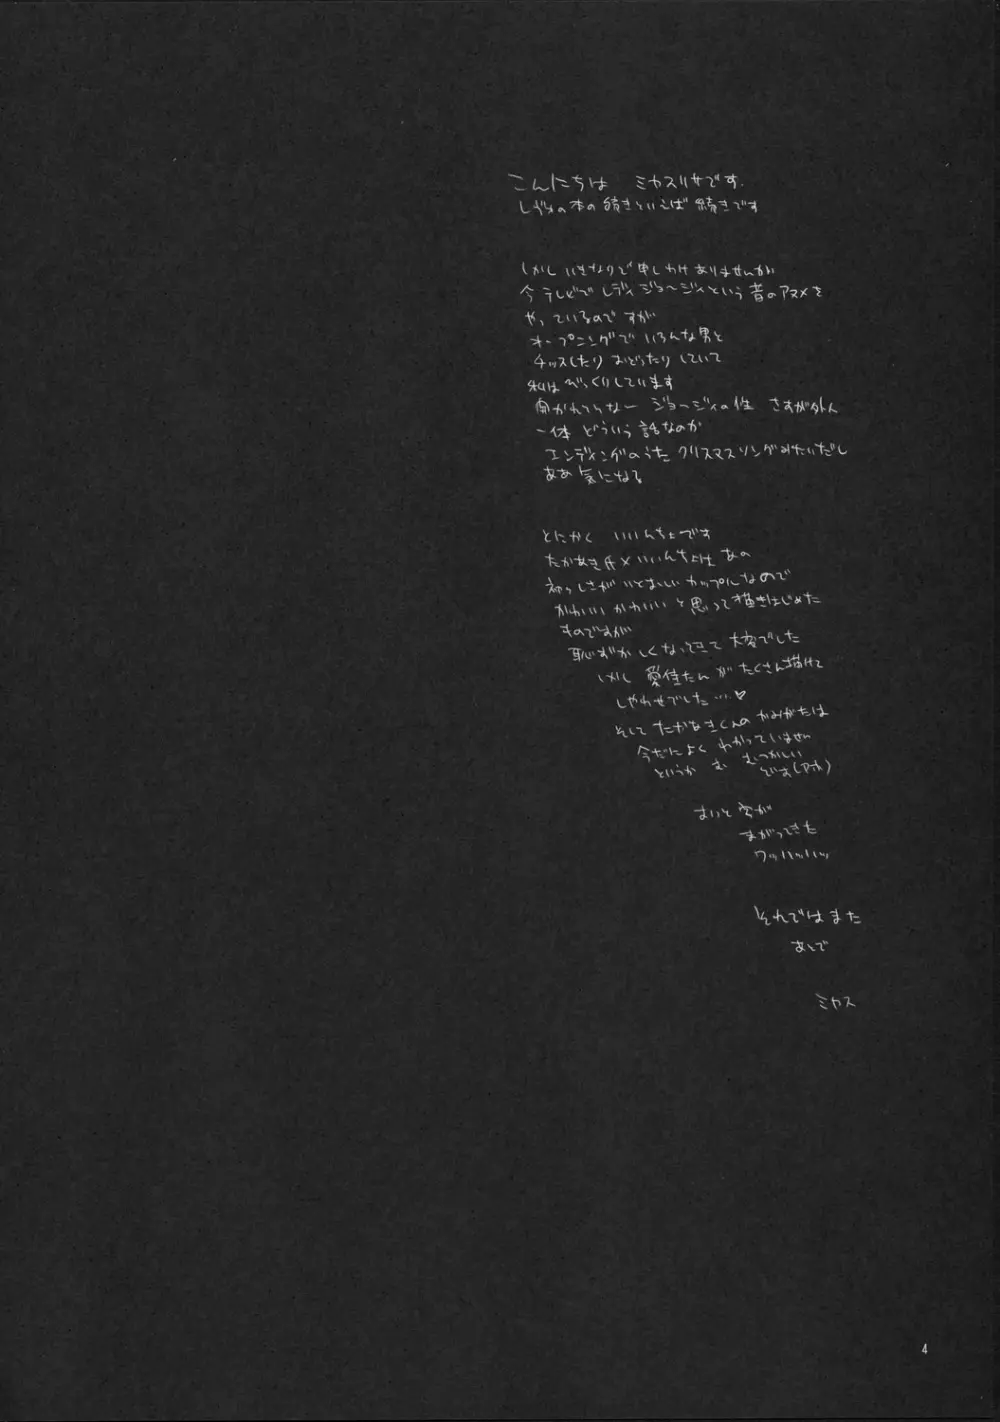 こんにちは ミカヅリサです.
の本の続きといえば続きです
しかし いきなりで申しわけありませんが
今テレビでレディジョージィという昔のアニメを
やっているのですが
オープニングでいろんな男と
チッスしたり おどったり していて
私はびっくりしています
ジョージィの性 さすが外人
一体 どういう話なのか
エンディングのうた クリスマスソングみたいだし
ああ 気になる
とにかく いいんちょです
たかあき氏×いいんちょは あの
カップルなので
かわいい かわいい と思って描きはじめた
ものですが
恥ずかしくなってきて 大変でした
しかし 愛佳たんが たくさん描けて
しやわせでした…♡
そして たかあきくんの かみがたは
今だによく わかっていません
というか む むつかしい
です(アホ)
字が
まがってきた
ワッハッハッ
それではまた
あとで
ミカヅ
4